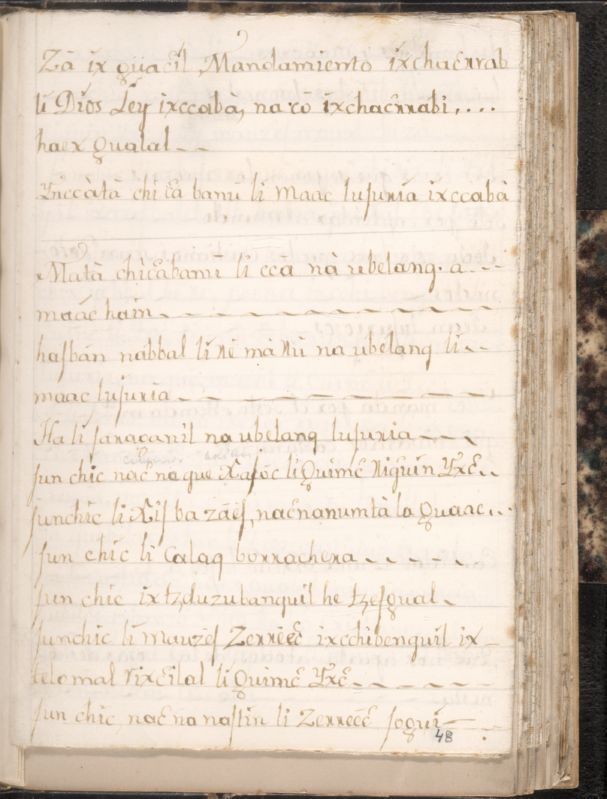 Zā ix guacil, Mandamiento ixchacrrab
li Dios Ley ixccaba, na ro ixchacrrabi,....
haex gualal
Ynccata chi ca banu li maac lujuria ixccabà
Mata chicabanu li cca nà ubelang. a
maác haín
hasban nabbal li ne ma nu na ubelang li
maac lujuria
Ha li saracanil na ubelang lujuria
Jun chic nac na que li Quime
Junchic li Xis ba zàes, nacnanumtà la guaac
Jun chic li Calag borrachera
Jun chic ix tzduzubanquil he tzesgual
Junchic li mauzes Zerreec ixchibenquil ix
telomal rixcilal li Quime
Jun chic nac na nastin li Zerreec sogui
48